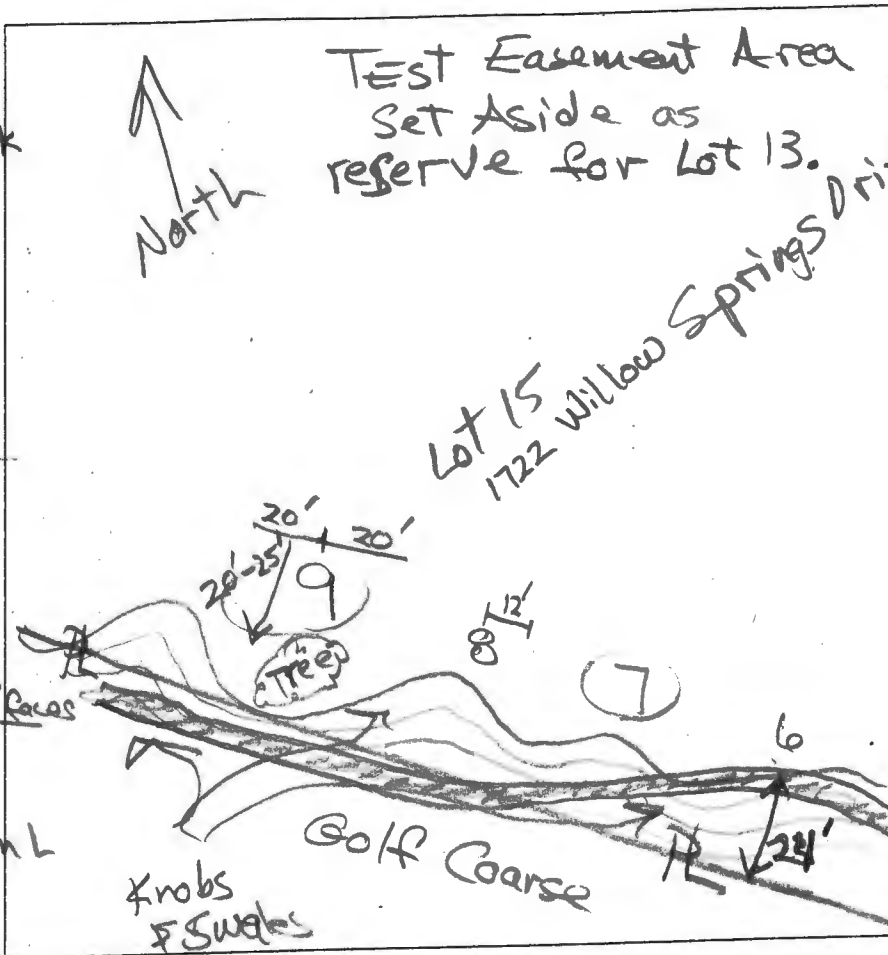 TEST Easement Area
Set Aside as
reserve for Lot 13.
North
Lot 15
1722 Willow Springs Dri
20' 20'
20'-25'
9
Tree
8 12'
7
6
PL
faces
24'
PL
Golf Coarse
Knobs
& Swales